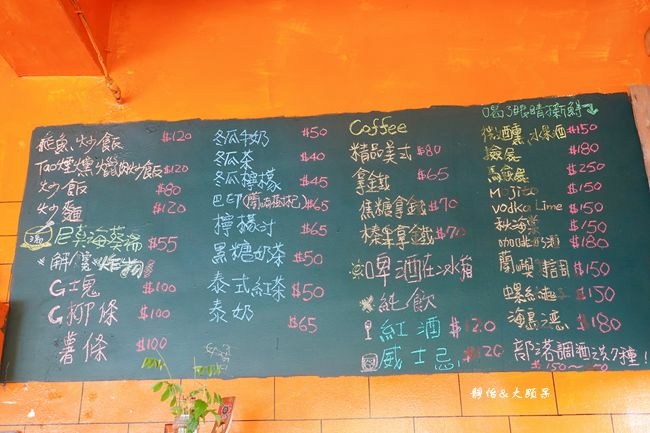 魚炒飯 $120
Tao煙燻臘肉炒飯 $120
炒飯 $80
炒麵 $120
尼莫海菜湯 $55
解饞炸物
G塊 $100
G柳條 $100
薯條 $100
冬瓜牛奶 $50
冬瓜茶 $40
冬瓜檸檬 $45
$65
檸檬汁 $65
黑糖奶茶 $50
泰式紅茶 $50
泰奶 $65
Coffee
精品美式 $80
拿鐵 $65
焦糖拿鐵 $70
榛果拿鐵 $70
啤酒在冰箱
純飲
紅酒 $120
威士忌 $120
喝了眼睛
微醺水果酒 $150
$180
$250
Mojito $150
vodka Lime $150
秋海棠 $150
咖啡奶酒 $180
蘭嶼 $150
$150
海島戀 $180
部落調酒
靜怡&大顆呆